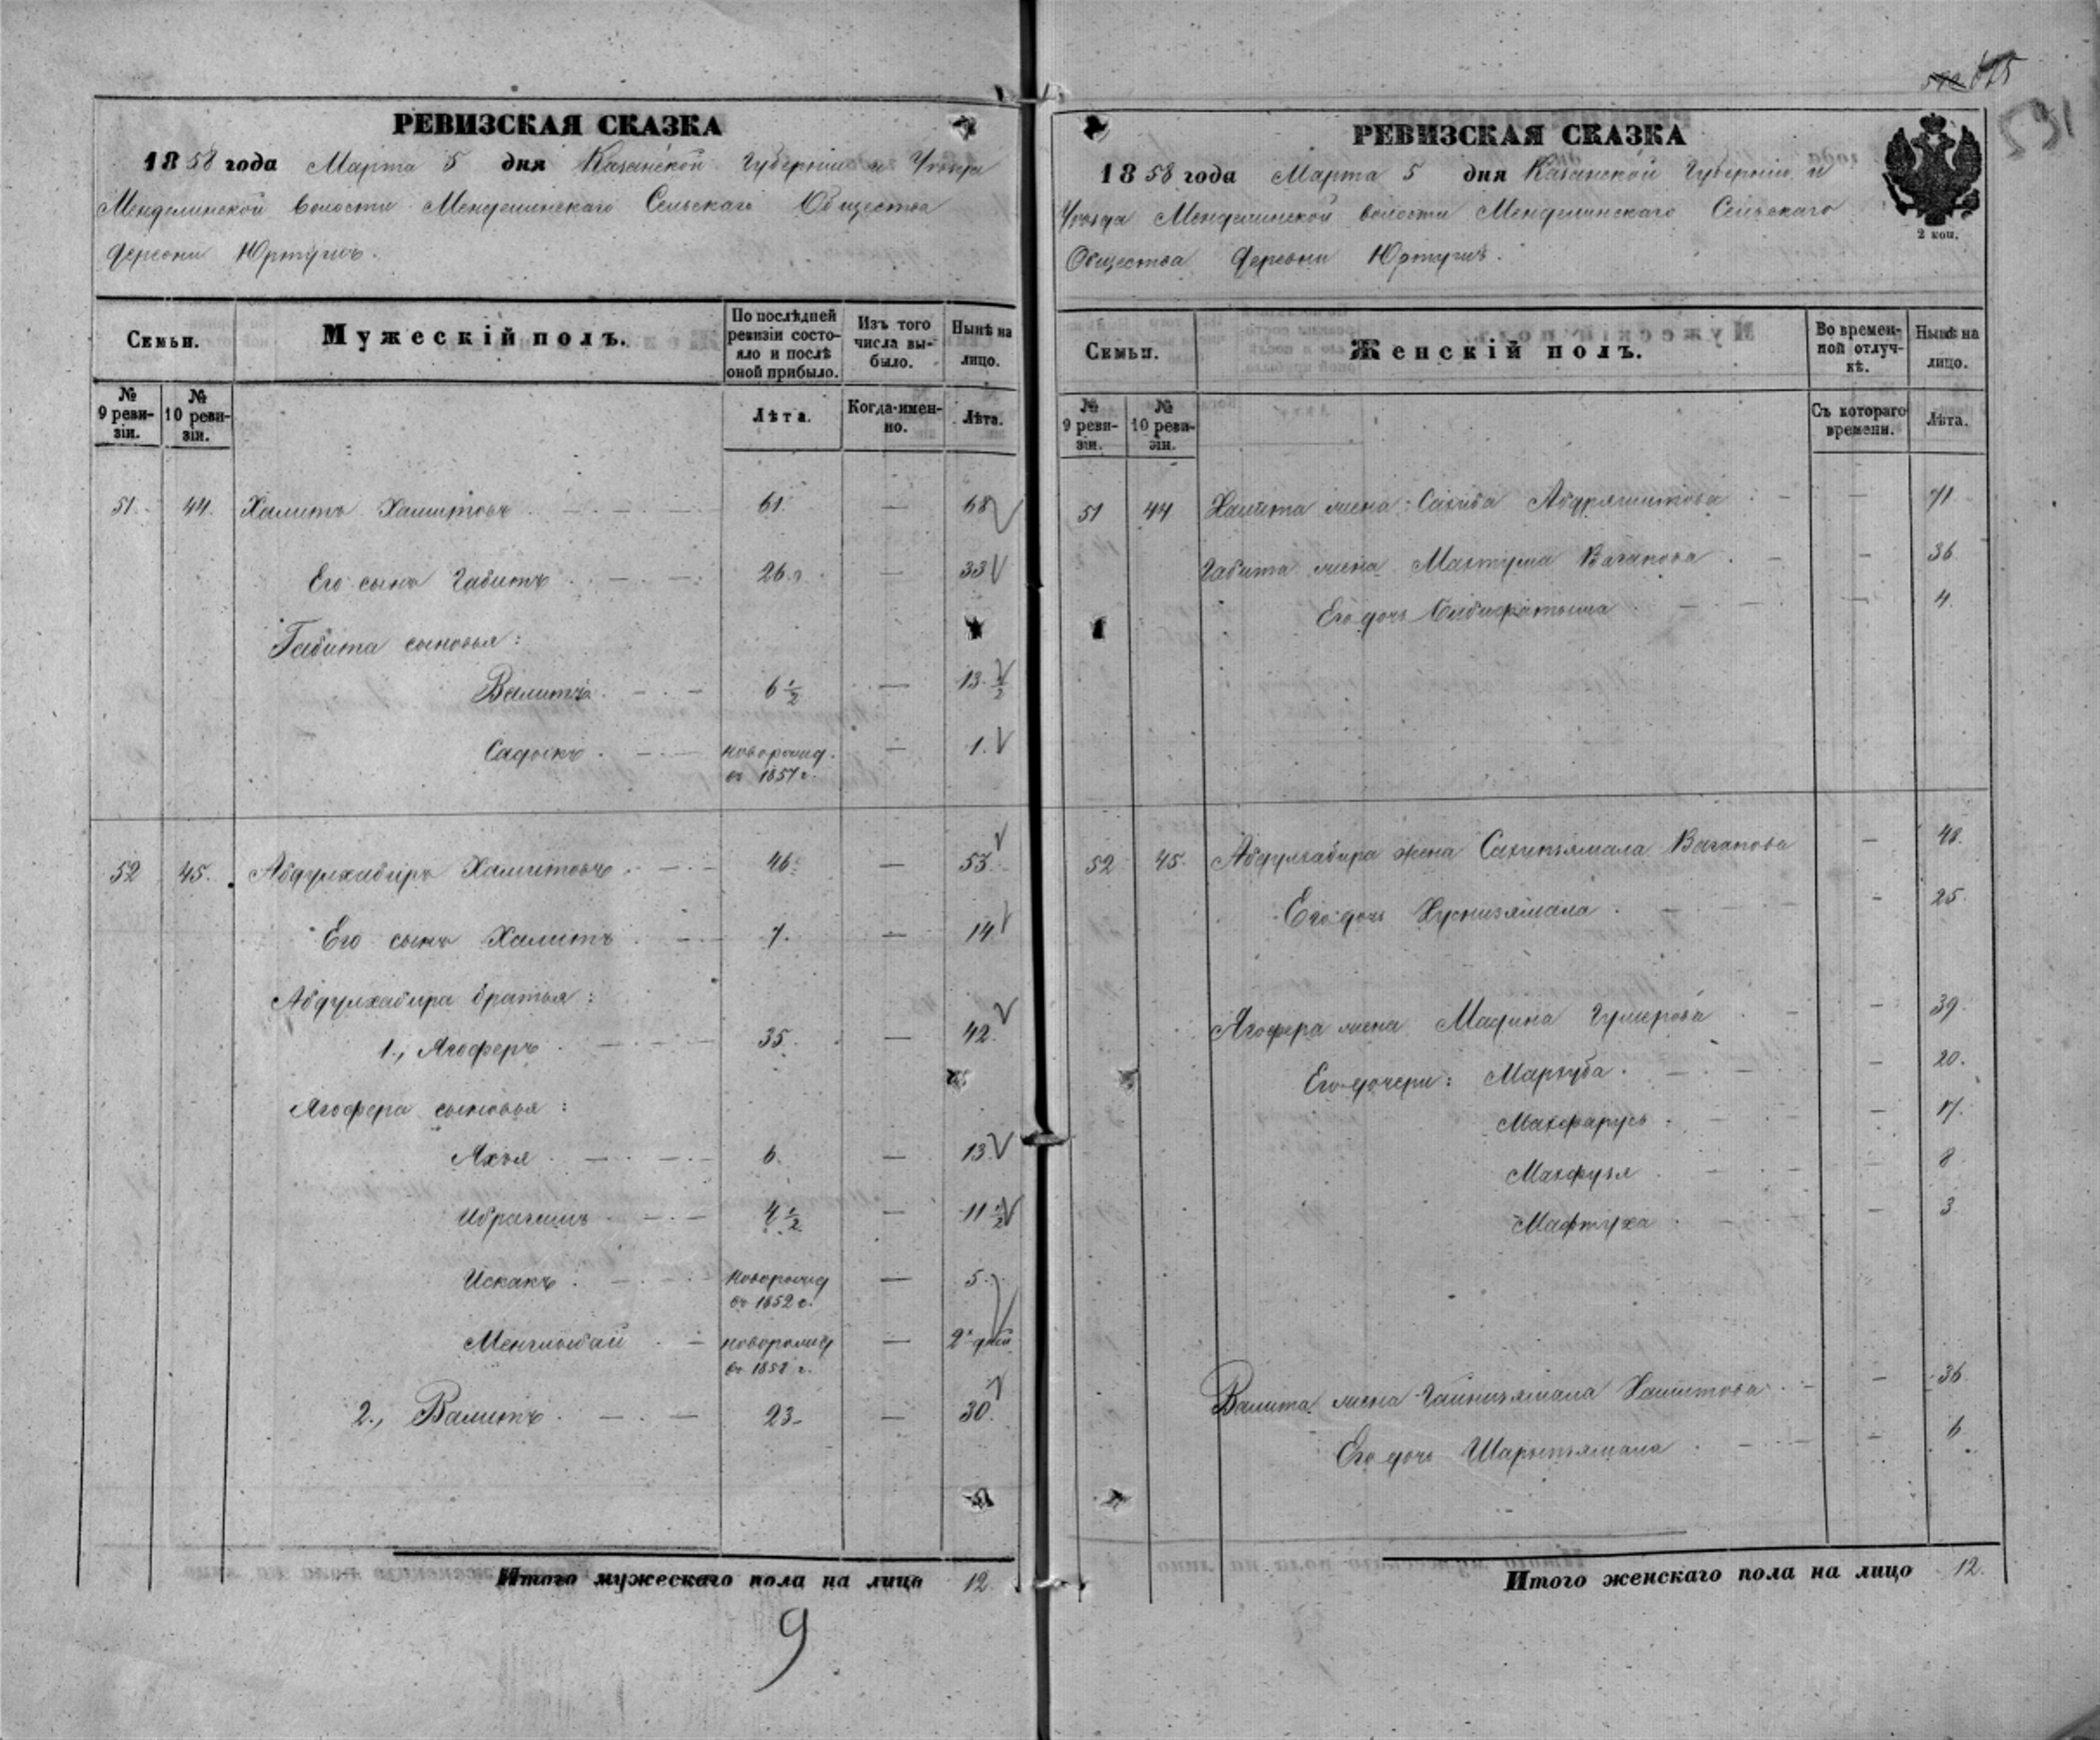 РЕВИЗСКАЯ СКАЗКА
1858 года Марта 5 дня Казанской Губернии и Уѣзда
Менделинской волости Менделинскаго Сельскаго Общества
Деревни Юртушъ.
Семьи.
Мужескій полъ.
По послѣдней ревизіи состояло и послѣ оной прибыло.
Изъ того числа выбыло.
Нынѣ на лицо.
№ 9 ревизіи.
№ 10 ревизіи.
Лѣта.
Когда-именно.
Лѣта.
51. 44. Халитъ Хамитовъ 61. — 68
Его сынъ Габитъ 26. — 33
Габита сыновья:
Валитъ 6 1/2 — 13 1/2
Садыкъ новорожд. въ 1857 г. — 1.
52 45. Абдулхабиръ Хамитовъ 46. — 53.
Его сынъ Халитъ 7. — 14
Абдулхабира братья:
1., Агоферъ 35. — 42.
Агофера сыновья:
Ахья 6. — 13
Ибрагимъ 4 1/2 — 11 1/2
Искакъ новорожд въ 1852 г. — 5.
новорожд въ 1858 г. — 2 дней
2., Валитъ 23 — 30.
Итого мужескаго пола на лицо 12.
9
675
591
РЕВИЗСКАЯ СКАЗКА
1858 года Марта 5 дня Казанской Губерніи и
Уѣзда Менделинской волости Менделинскаго Сельскаго
Общества Деревни Юртушъ.
2 коп.
Семьи.
Женскій полъ.
Во временной отлучкѣ.
Нынѣ на лицо.
№ 9 ревизіи.
№ 10 ревизіи.
Съ котораго времени.
Лѣта.
51 44 жена: Сахиба Абдряшитова — 71
Габита жена Махтума Вагапова — 36.
Его дочь Бибифатыма — 4.
52 45. Абдулхабира жена Сахипзямала Вагапова — 48.
Его дочь Хуснизямала — 25.
Агофера жена Мадина Гумерова — 39.
Его дочери: Маркуба — 20.
— 17.
Махфузя — 8
Мафтуха — 3
Валита жена Гайнизямала Хамитова — 36.
Его дочь Шарипзямала — 6.
Итого женскаго пола на лицо 12.